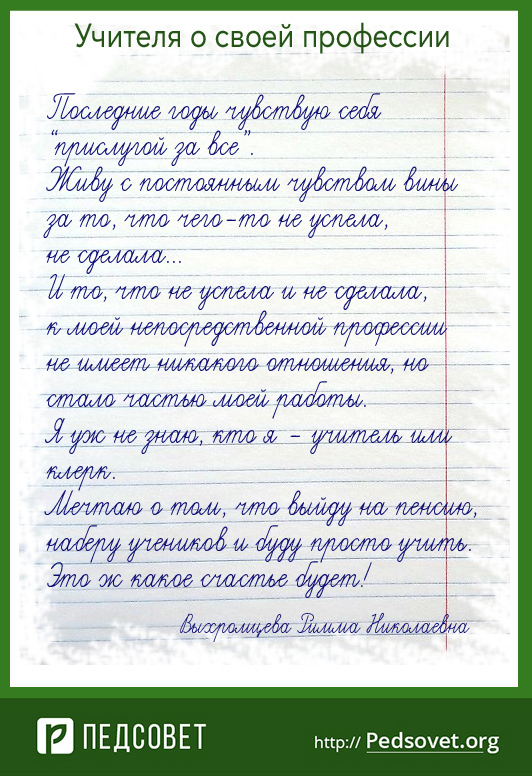 Учителя о своей профессии
Последние годы чувствую себя
"прислугой за все".
Живу с постоянным чувством вины
за то, что чего-то не успела,
не сделала...
И то, что не успела и не сделала,
к моей непосредственной профессии
не имеет никакого отношения, но
стало частью моей работы.
Я уж не знаю, кто я - учитель или
клерк.
Мечтаю о том, что выйду на пенсию,
наберу учеников и буду просто учить.
Это ж какое счастье будет!
Выхромцева Римма Николаевна
ПЕДСОВЕТ
http:// Pedsovet.org